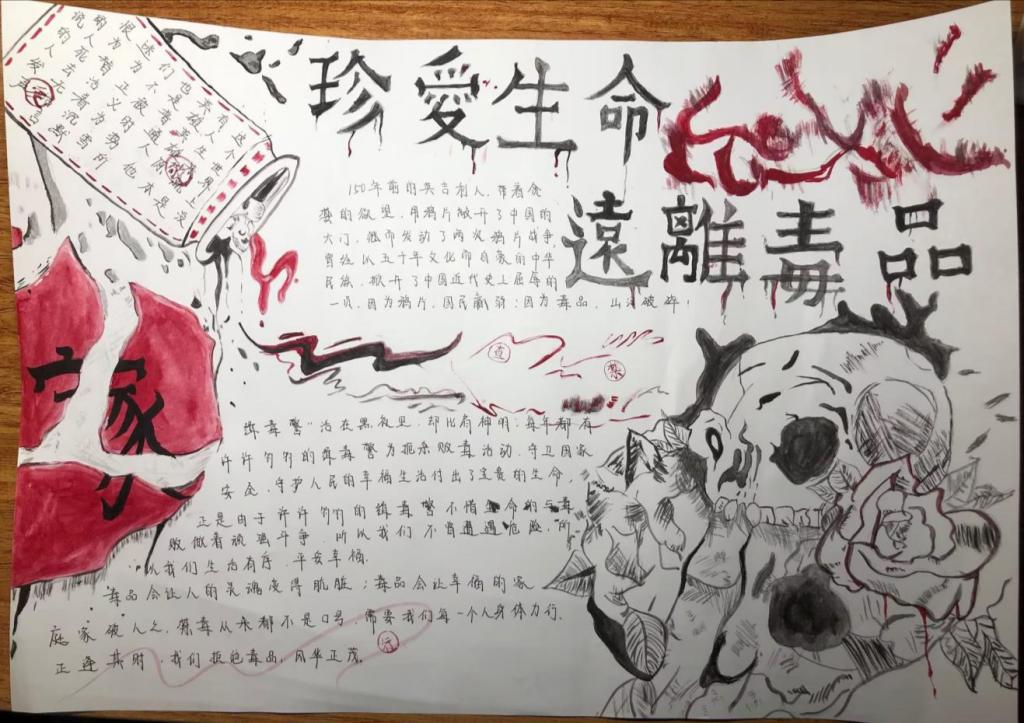 珍愛生命
遠離毒品
这个世界上没
150年前的英吉利人,带着贪
婪的欲望,用鸦片敲开了中国的
大门,继而发动了两次鸦片战争,
曾经以五千年文化而自豪的中华
民族,掀开了中国近代史上屈辱的
一页,因为鸦片,国民羸弱;因为毒品,山河破碎!
家
缉毒警"活在黑夜里,却比有神明;每年都有
许许多多的缉毒警为扼杀贩毒活动,守卫国家
安全,守护人民的幸福生活付出了宝贵的生命,
正是由于许许多多的缉毒警不惜生命的与毒
贩做着顽强斗争,所以我们不曾遭遇危险,所
以我们生活有序,平安幸福.
毒品会让人的灵魂变得肮脏;毒品会让幸福的家
庭家破人亡,禁毒从来都不是口号,需要我们每一个人身体力行.
正逢其时,我们拒绝毒品,风华正茂.